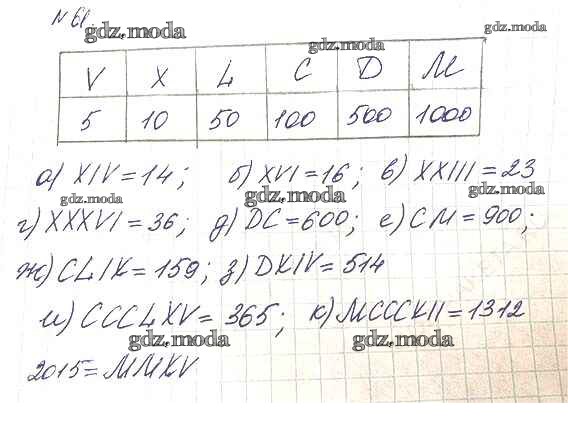 № 61.
gdz.moda
gdz.moda
gdz.moda
V X L C D M
5 10 50 100 500 1000
а) XIV = 14; б) XVI = 16; в) XXIII = 23
gdz.moda gdz.moda gdz.moda
г) XXXVI = 36; д) DC = 600; е) CM = 900;
ж) CLIX = 159; з) DXIV = 514
и) CCCLXV = 365; к) MCCCXII = 1312
gdz.moda gdz.moda
2015 = MMXV